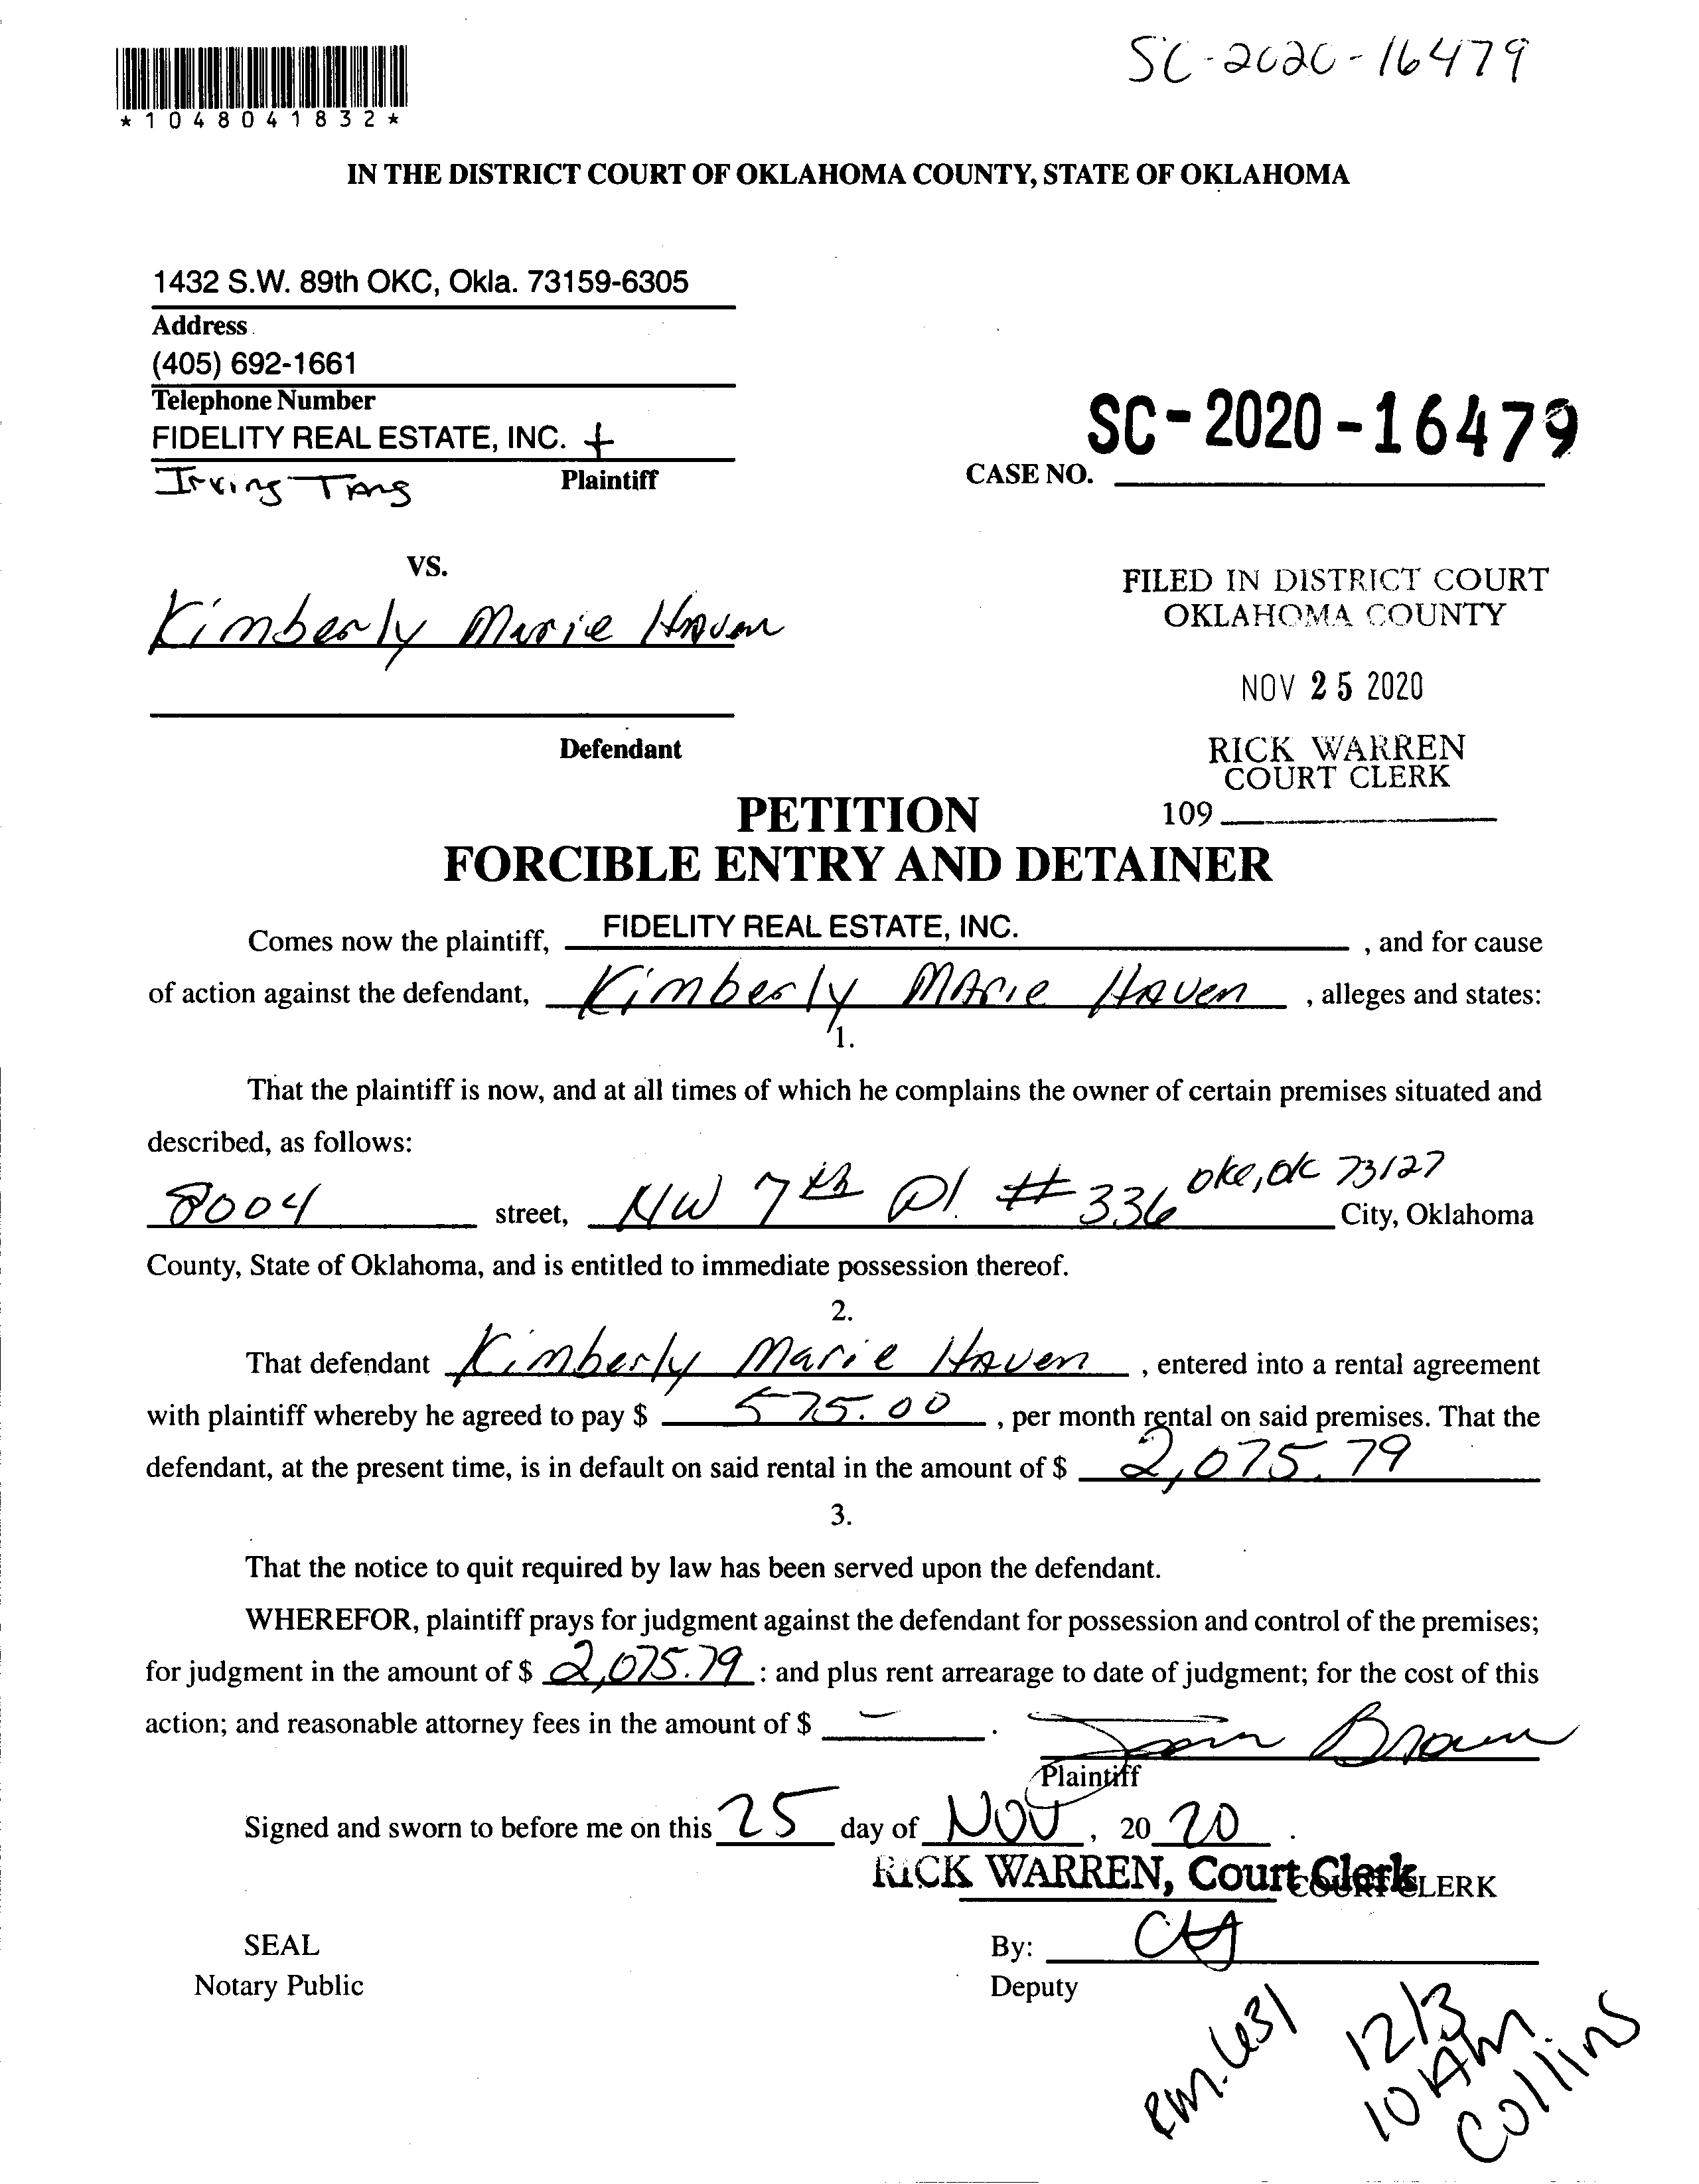 SC-2020-16479
*1048041832*
IN THE DISTRICT COURT OF OKLAHOMA COUNTY, STATE OF OKLAHOMA
1432 S.W. 89th OKC, Okla. 73159-6305
Address
(405) 692-1661
Telephone Number
FIDELITY REAL ESTATE, INC. +
Irving Tang Plaintiff
SC-2020-16479
CASE NO.
VS.
Kimberly Marie Haven
Defendant
FILED IN DISTRICT COURT
OKLAHOMA COUNTY
NOV 25 2020
RICK WARREN
COURT CLERK
109
PETITION
FORCIBLE ENTRY AND DETAINER
Comes now the plaintiff, FIDELITY REAL ESTATE, INC. , and for cause
of action against the defendant, Kimberly Marie Haven , alleges and states:
1.
That the plaintiff is now, and at all times of which he complains the owner of certain premises situated and
described, as follows:
8004 street, NW 7th Pl. #336 okc, ok 73127 City, Oklahoma
County, State of Oklahoma, and is entitled to immediate possession thereof.
2.
That defendant Kimberly Marie Haven , entered into a rental agreement
with plaintiff whereby he agreed to pay $ 575.00 , per month rental on said premises. That the
defendant, at the present time, is in default on said rental in the amount of $ 2,075.79
3.
That the notice to quit required by law has been served upon the defendant.
WHEREFOR, plaintiff prays for judgment against the defendant for possession and control of the premises;
for judgment in the amount of $ 2,075.79 : and plus rent arrearage to date of judgment; for the cost of this
action; and reasonable attorney fees in the amount of $ — .
Brown
Plaintiff
Signed and sworn to before me on this 25 day of NOV , 20 20 .
RICK WARREN, Court Clerk COURT CLERK
SEAL
Notary Public
By:
Deputy
RM. 631
12/3
10 AM
Collins